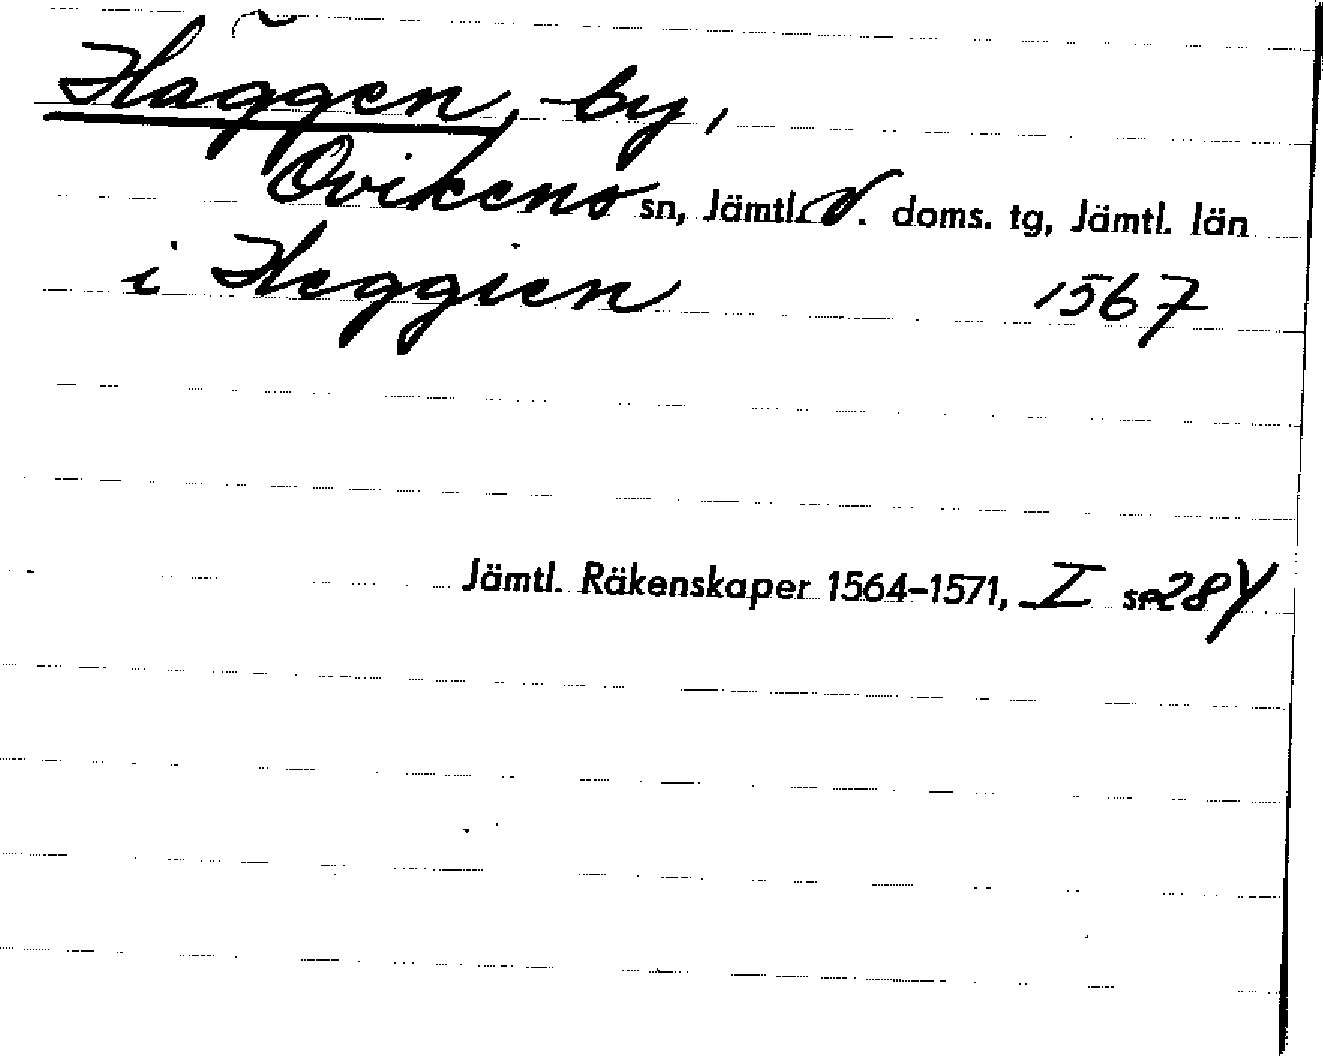 Häggen, by,
Ovikens sn, Jämtl. V. doms. tg, Jämtl. län
i Heggien 1567
Jämtl. Räkenskaper 1564–1571, I s. 284